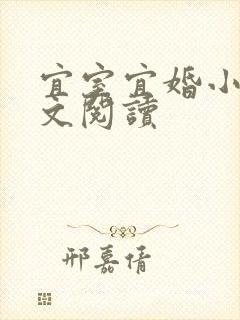 宜室宜婚小
文閱讀
邢嘉倩